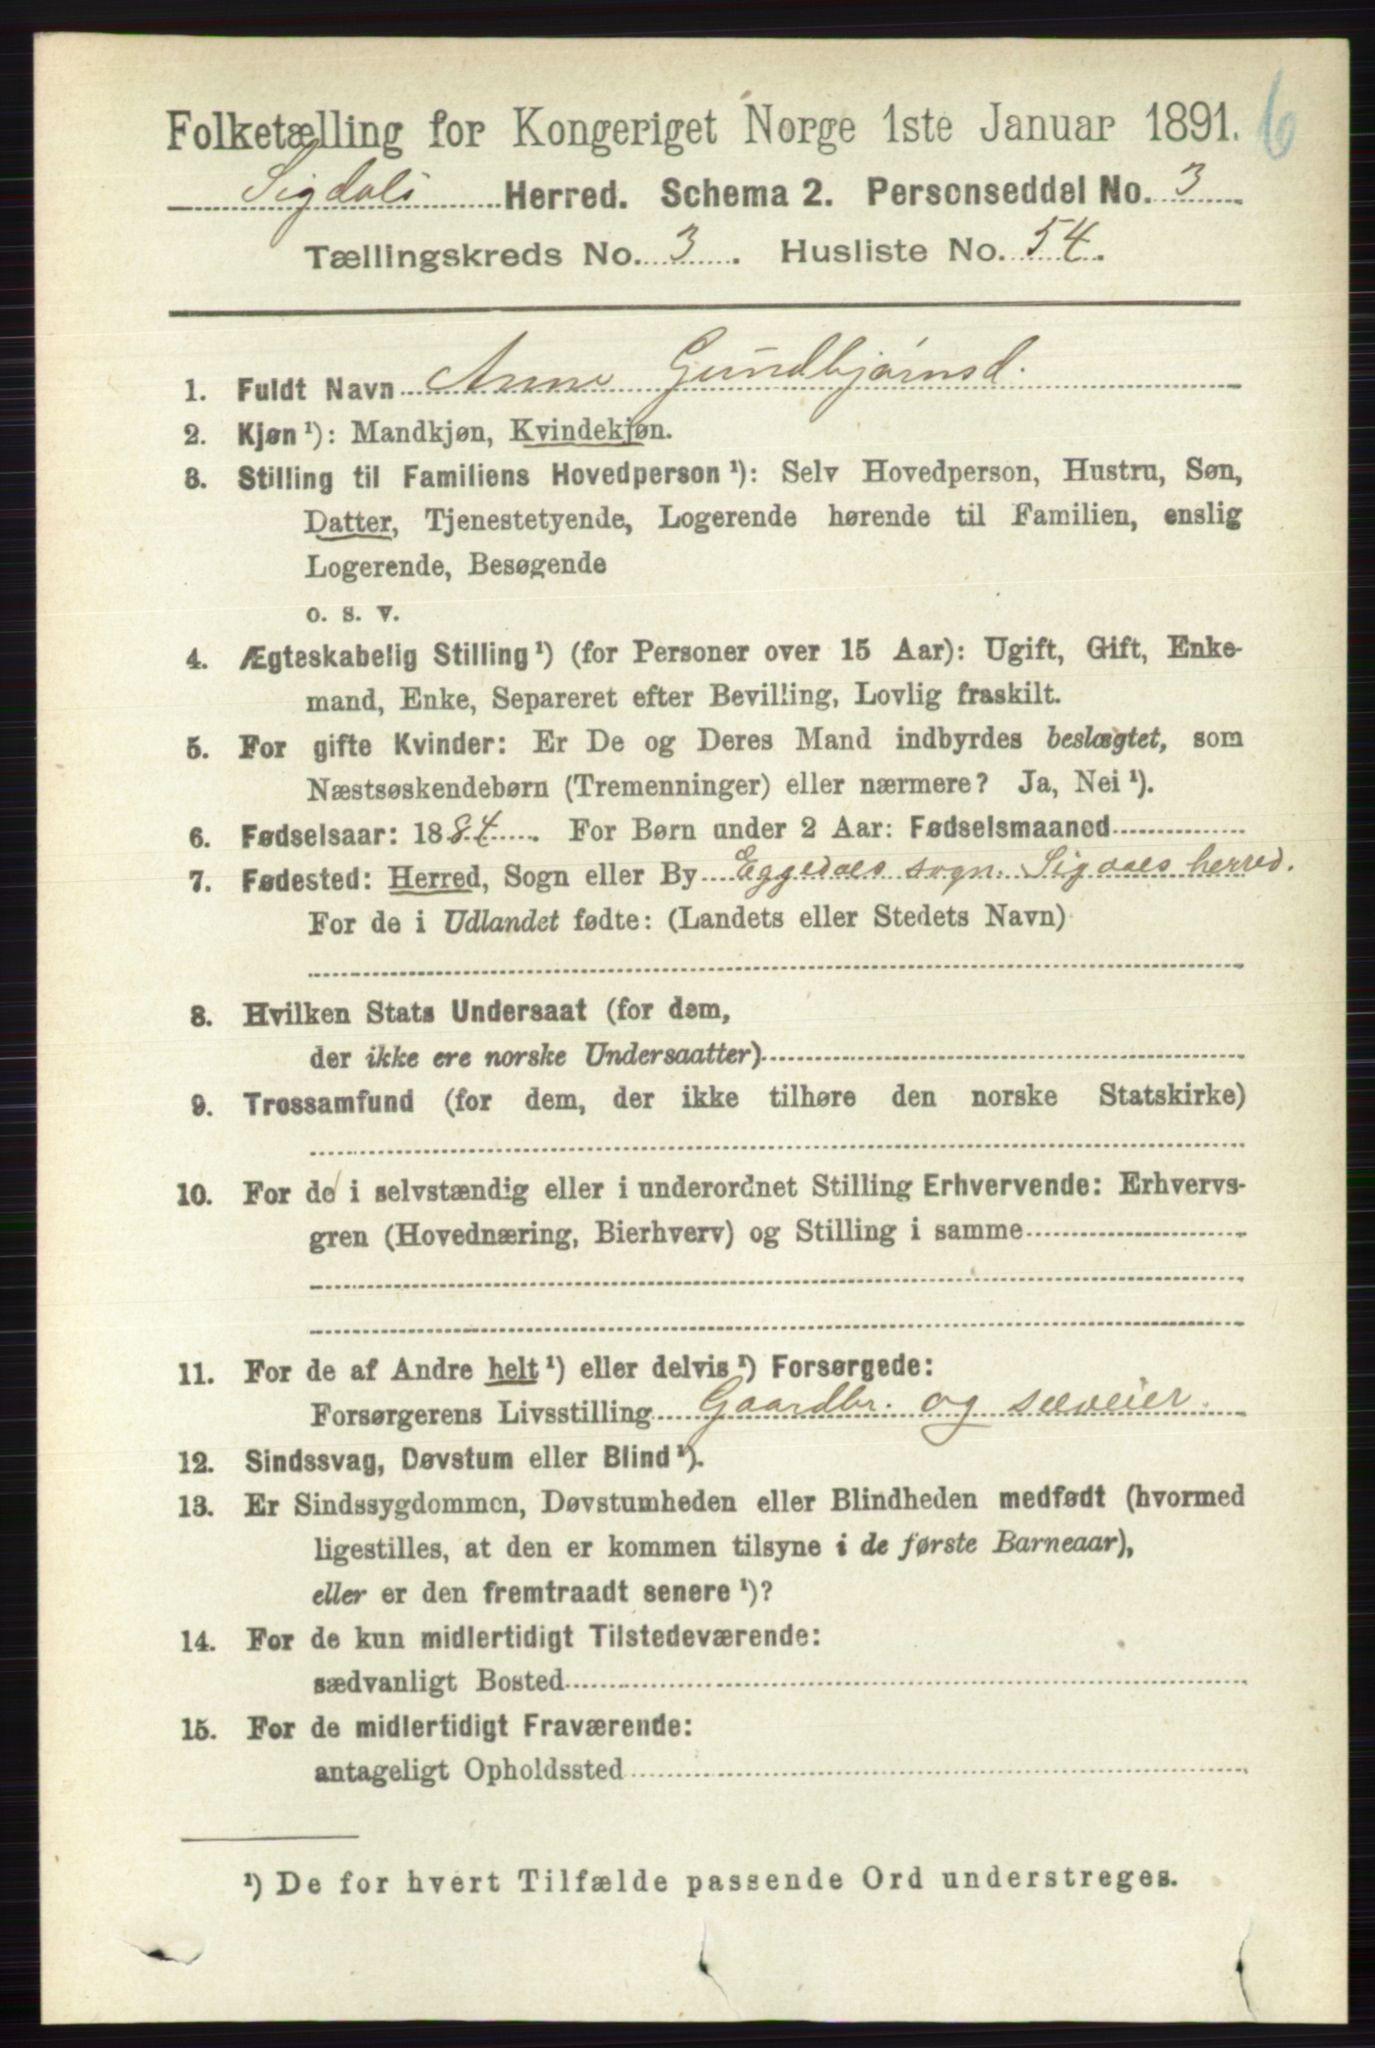 Folketælling for Kongeriget Norge 1ste Januar 1891. 6
Sigdals Herred. Schema 2. Personseddel No. 3
Tællingskreds No. 3. Husliste No. 54.
1. Fuldt Navn Anne Gundbjørnsd.
2. Kjøn ¹): Mandkjøn, Kvindekjøn.
3. Stilling til Familiens Hovedperson ¹): Selv Hovedperson, Hustru, Søn,
Datter, Tjenestetyende, Logerende hørende til Familien, enslig
Logerende, Besøgende
o. s. v.
4. Ægteskabelig Stilling ¹) (for Personer over 15 Aar): Ugift, Gift, Enke-
mand, Enke, Separeret efter Bevilling, Lovlig fraskilt.
5. For gifte Kvinder: Er De og Deres Mand indbyrdes beslægtet, som
Næstsøskendebørn (Tremenninger) eller nærmere? Ja, Nei ¹).
6. Fødselsaar: 1884. For Børn under 2 Aar: Fødselsmaaned
7. Fødested: Herred, Sogn eller By Eggedals sogn. Sigdals herred.
For de i Udlandet fødte: (Landets eller Stedets Navn)
8. Hvilken Stats Undersaat (for dem,
der ikke ere norske Undersaatter)
9. Trossamfund (for dem, der ikke tilhøre den norske Statskirke)
10. For de i selvstændig eller i underordnet Stilling Erhvervende: Erhvervs-
gren (Hovednæring, Bierhverv) og Stilling i samme
11. For de af Andre helt ¹) eller delvis ¹) Forsørgede:
Forsørgerens Livsstilling Gaardbr. og selveier.
12. Sindssvag, Døvstum eller Blind ¹).
13. Er Sindssygdommen, Døvstumheden eller Blindheden medfødt (hvormed
ligestilles, at den er kommen tilsyne i de første Barneaar),
eller er den fremtraadt senere ¹)?
14. For de kun midlertidigt Tilstedeværende:
sædvanligt Bosted
15. For de midlertidigt Fraværende:
antageligt Opholdssted
¹) De for hvert Tilfælde passende Ord understreges.